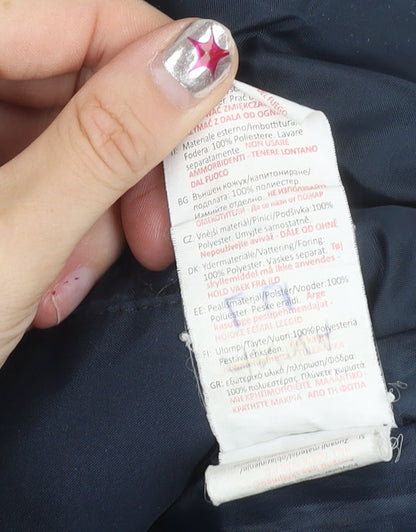 FUEGO
Prać
ZMIĘKCZA
TRZYMAĆ Z DALA OD OGNIA
IT: Materiale esterno/Imbottitura/
Fodera: 100% Poliestere. Lavare
separatamente. NON USARE
AMMORBIDENTI - TENERE LONTANO
DAL FUOCO
BG: Външен кожух/капитониране/
подплата: 100% полиестер.
Измийте отделно. НЕ ИЗПОЛЗВАЙТЕ
ОМЕКОТИТЕЛИ - Да се пази от ПОЖАР
CZ: Vnější materiál/Plnicí/Podšívka: 100%
Polyester. Umyjte samostatně.
Nepoužívejte aviváž - DÁLE OD OHNĚ
DK: Ydermateriale/Vattering/Foring:
100% Polyester. Vaskes separat. Tøj
skyllemiddel må ikke anvendes -
HOLD VÆK FRA ILD
EE: Pealmaterjal/Polster/Vooder: 100%
Polüester. Peske eraldi. Ärge
kasutage pesupehmendajat -
HOIDKE EEMAL LEEGID
FI: Ulompi/Täyte/Vuori: 100% Polyesteria
Pestävä erikseen.
GR: εξωτερικό υλικό/πλήρωση/Φόδρα
100% πολυεστέρας. Πλύνετε χωριστά
ΜΗ ΧΡΗΣΙΜΟΠΟΙΕΙΤΕ ΜΑΛΑΚΤΙΚΟ
ΚΡΑΤΗΣΤΕ ΜΑΚΡΙΑ ΑΠΟ ΤΗ ΦΩΤΙΑ